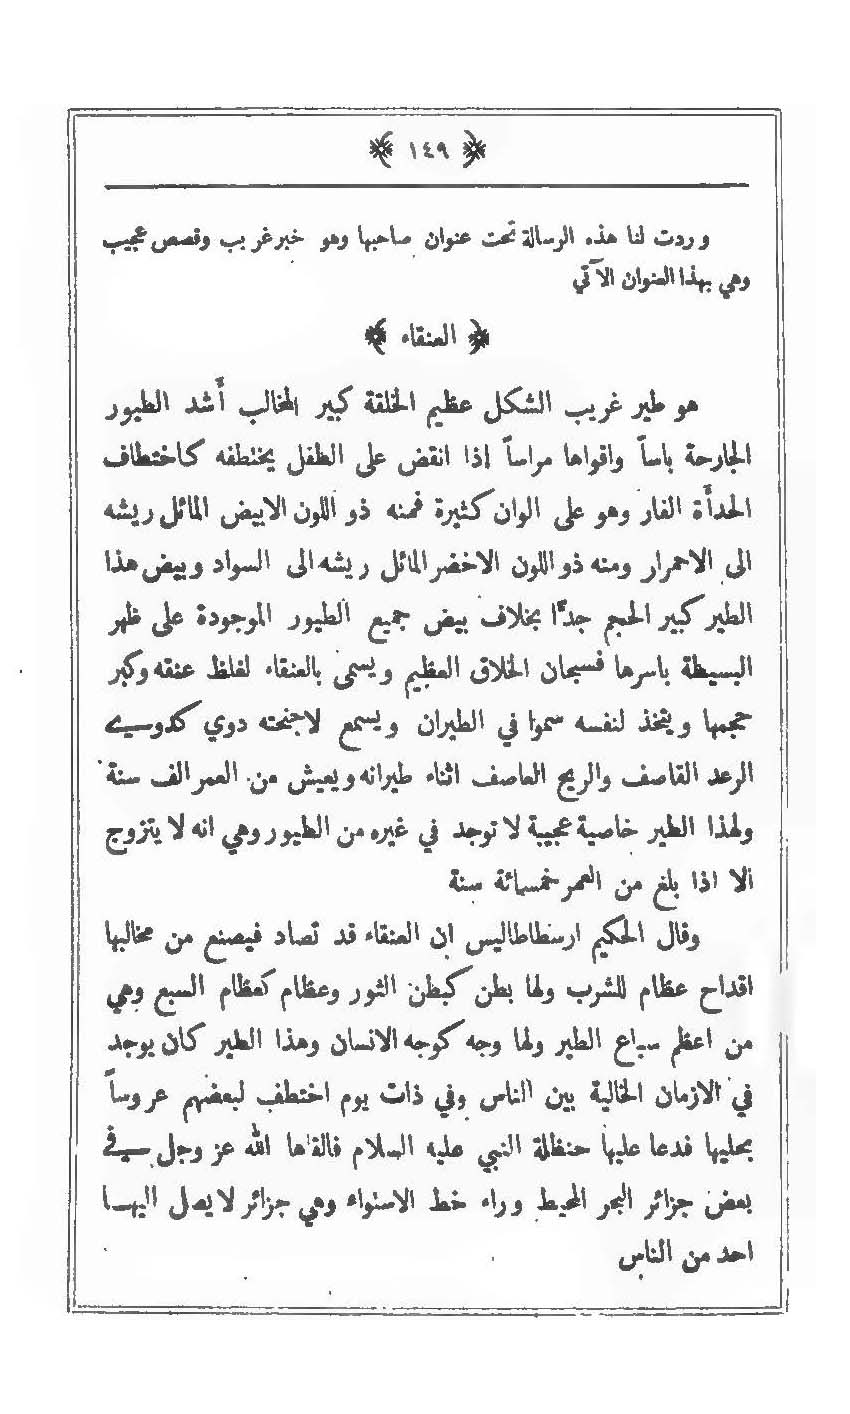 ١٤٩
وردت لنا هذه الرسالة تحت عنوان صاحبها وهو خبر غريب وقصص عجيب
وهي بهذا العنوان الآتي
العنقاء
هو طير غريب الشكل عظيم الخلقة كبير المخالب أشد الطيور
الجارحة باساً واقواها مراساً إذا انقض على الطفل يختطفه كاختطاف
الحدأة الفار وهو على الوان كثيرة فمنه ذو اللون الابيض المائل ريشه
الى الاحمرار ومنه ذو اللون الاخضر المائل ريشه الى السواد وبيض هذا
الطير كبير الحجم جدًا بخلاف بيض جميع الطيور الموجودة على ظهر
البسيطة باسرها فسبحان الخلاق العظيم ويسمى بالعنقاء لغلظ عنقه وكبر
حجمها ويتخذ لنفسه سموا في الطيران ويسمع لاجنحته دوي كدوي
الرعد القاصف والريح العاصف اثناء طيرانه ويعيش من العمر الف سنة
ولهذا الطير خاصية عجيبة لا توجد في غيره من الطيور وهي انه لا يتزوج
الا اذا بلغ من العمر خمسمائة سنة
وقال الحكيم ارسطاطاليس ان العنقاء قد تصاد فيصنع من مخالبها
اقداح عظام للشرب ولها بطن كبطن الثور وعظام كعظام السبع وهي
من اعظم سباع الطير ولها وجه كوجه الانسان وهذا الطير كان يوجد
في الازمان الخالية بين الناس وفي ذات يوم اختطف لبعضهم عروساً
بحليها فدعا عليها حنظلة النبي عليه السلام فالقاها الله عز وجل في
بعض جزائر البحر المحيط وراء خط الاستواء وهي جزائر لا يصل اليها
احد من الناس